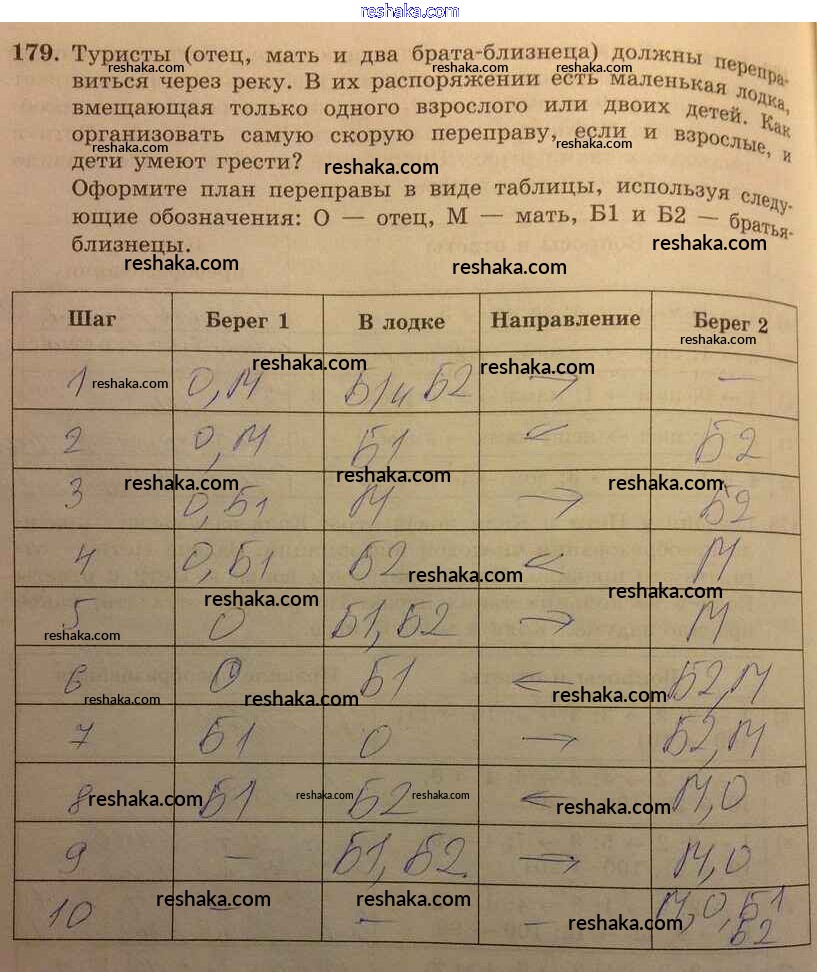 reshaka.com
179. Туристы (отец, мать и два брата-близнеца) должны перепра-
reshaka.com reshaka.com reshaka.com
виться через реку. В их распоряжении есть маленькая лодка,
вмещающая только одного взрослого или двоих детей. Как
reshaka.com reshaka.com
организовать самую скорую переправу, если и взрослые, и
дети умеют грести?
reshaka.com
Оформите план переправы в виде таблицы, используя следу-
ющие обозначения: О — отец, М — мать, Б1 и Б2 — братья-
близнецы.
reshaka.com reshaka.com
Шаг Берег 1 В лодке Направление Берег 2
reshaka.com
reshaka.com reshaka.com
1 reshaka.com О, М Б1 и Б2 → –
2 О, М Б1 ← Б2
reshaka.com reshaka.com reshaka.com
3 О, Б1 М → Б2
4 О, Б1 Б2 ← М
reshaka.com
reshaka.com reshaka.com
5 О Б1, Б2 → М
reshaka.com
6 О Б1 ← Б2, М
reshaka.com reshaka.com reshaka.com
7 Б1 О → Б2, М
8 Б1 Б2 ← М, О
reshaka.com reshaka.com reshaka.com reshaka.com
9 – Б1, Б2 → М, О
10 – – – М, О, Б1
Б2
reshaka.com reshaka.com reshaka.com